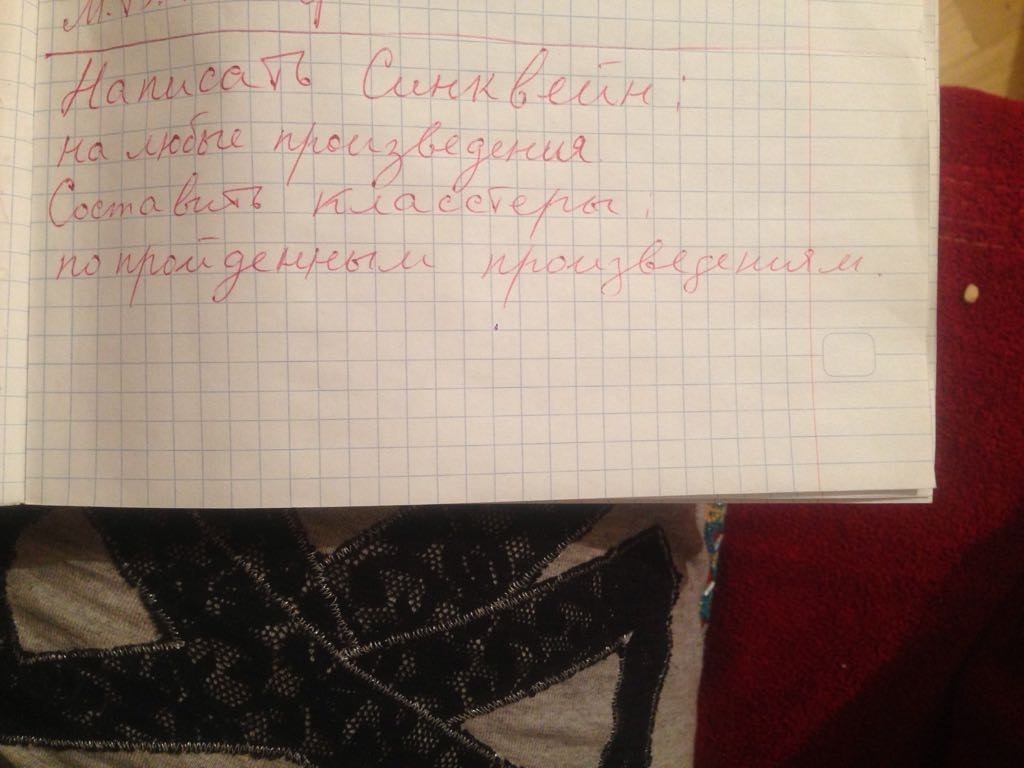 Написать Синквейн:
на любые произведения
Составить класстеры:
по пройденным произведениям.